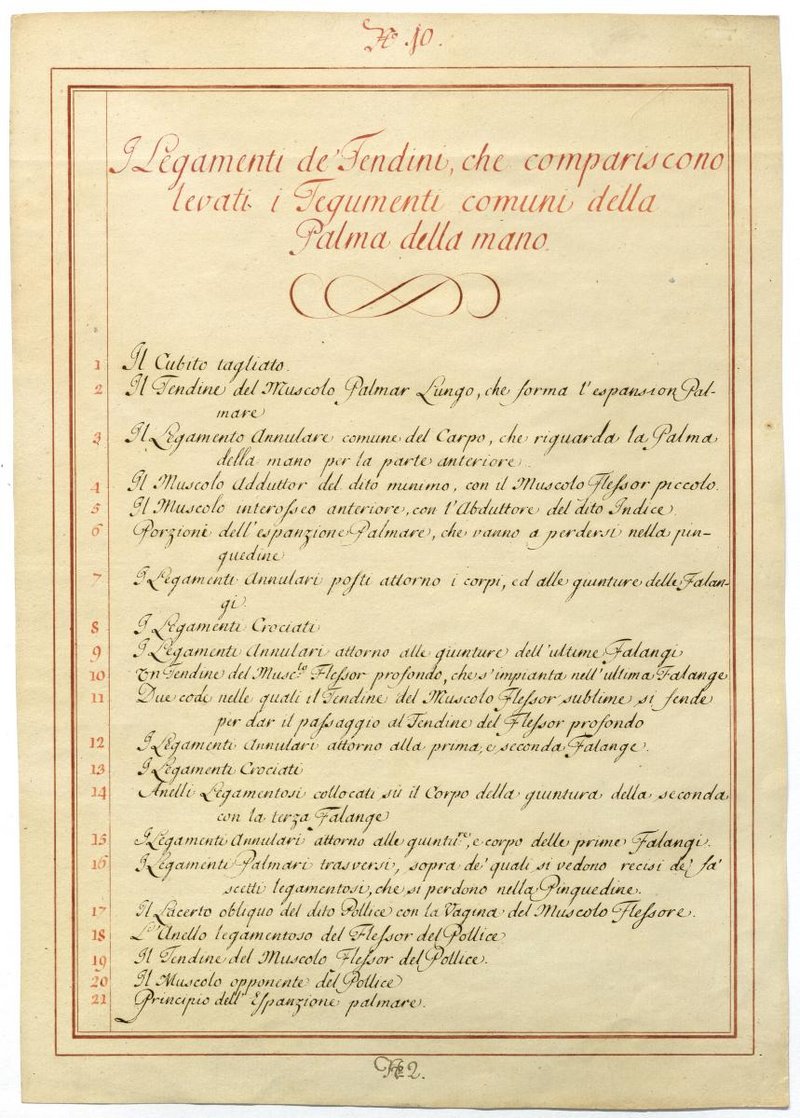 No. 10.
I Legamenti de' Tendini, che compariscono
levati i Tegumenti comuni della
Palma della mano.
1 Il Cubito tagliato.
2 Il Tendine del Muscolo Palmar Lungo, che forma l'espansion Pal-
mare
3 Il Legamento Annulare comune del Carpo, che riguarda la Palma
della mano per la parte anteriore.
4 Il Muscolo Adduttor del dito minimo, con il Muscolo Flessor piccolo.
5 Il Muscolo interosseo anteriore, con l'Abduttore del dito Indice.
6 Porzioni dell'espanzione Palmare, che vanno a perdersi nella pin-
guedine
7 I Legamenti Annulari posti attorno i corpi, ed alle giunture delle Falan-
gi.
8 I Legamenti Crociati
9 I Legamenti Annulari attorno alle giunture dell'ultime Falangi
10 Un Tendine del Musc.lo Flessor profondo, che s'impianta nell'ultima Falange
11 Due code nelle quali il Tendine del Muscolo Flessor sublime si fende
per dar il passaggio al Tendine del Flessor profondo
12 I Legamenti Annulari attorno alla prima, e seconda Falange.
13 I Legamenti Crociati
14 Anelli Legamentosi collocati sù il Corpo della giuntura della seconda
con la terza Falange
15 I Legamenti Annulari attorno alle giuntu.re, e corpo delle prime Falangi.
16 I Legamenti Palmari trasversi, sopra de' quali si vedono recisi de' fa'
scetti legamentosi, che si perdono nella Pinquedine.
17 Il Lacerto obliquo del dito Pollice con la Vagina del Muscolo Flessore.
18 L'Anello legamentoso del Flessor del Pollice
19 Il Tendine del Muscolo Flessor del Pollice.
20 Il Muscolo opponente del Pollice
21 Principio dell'Espanzione palmare.
No 2.